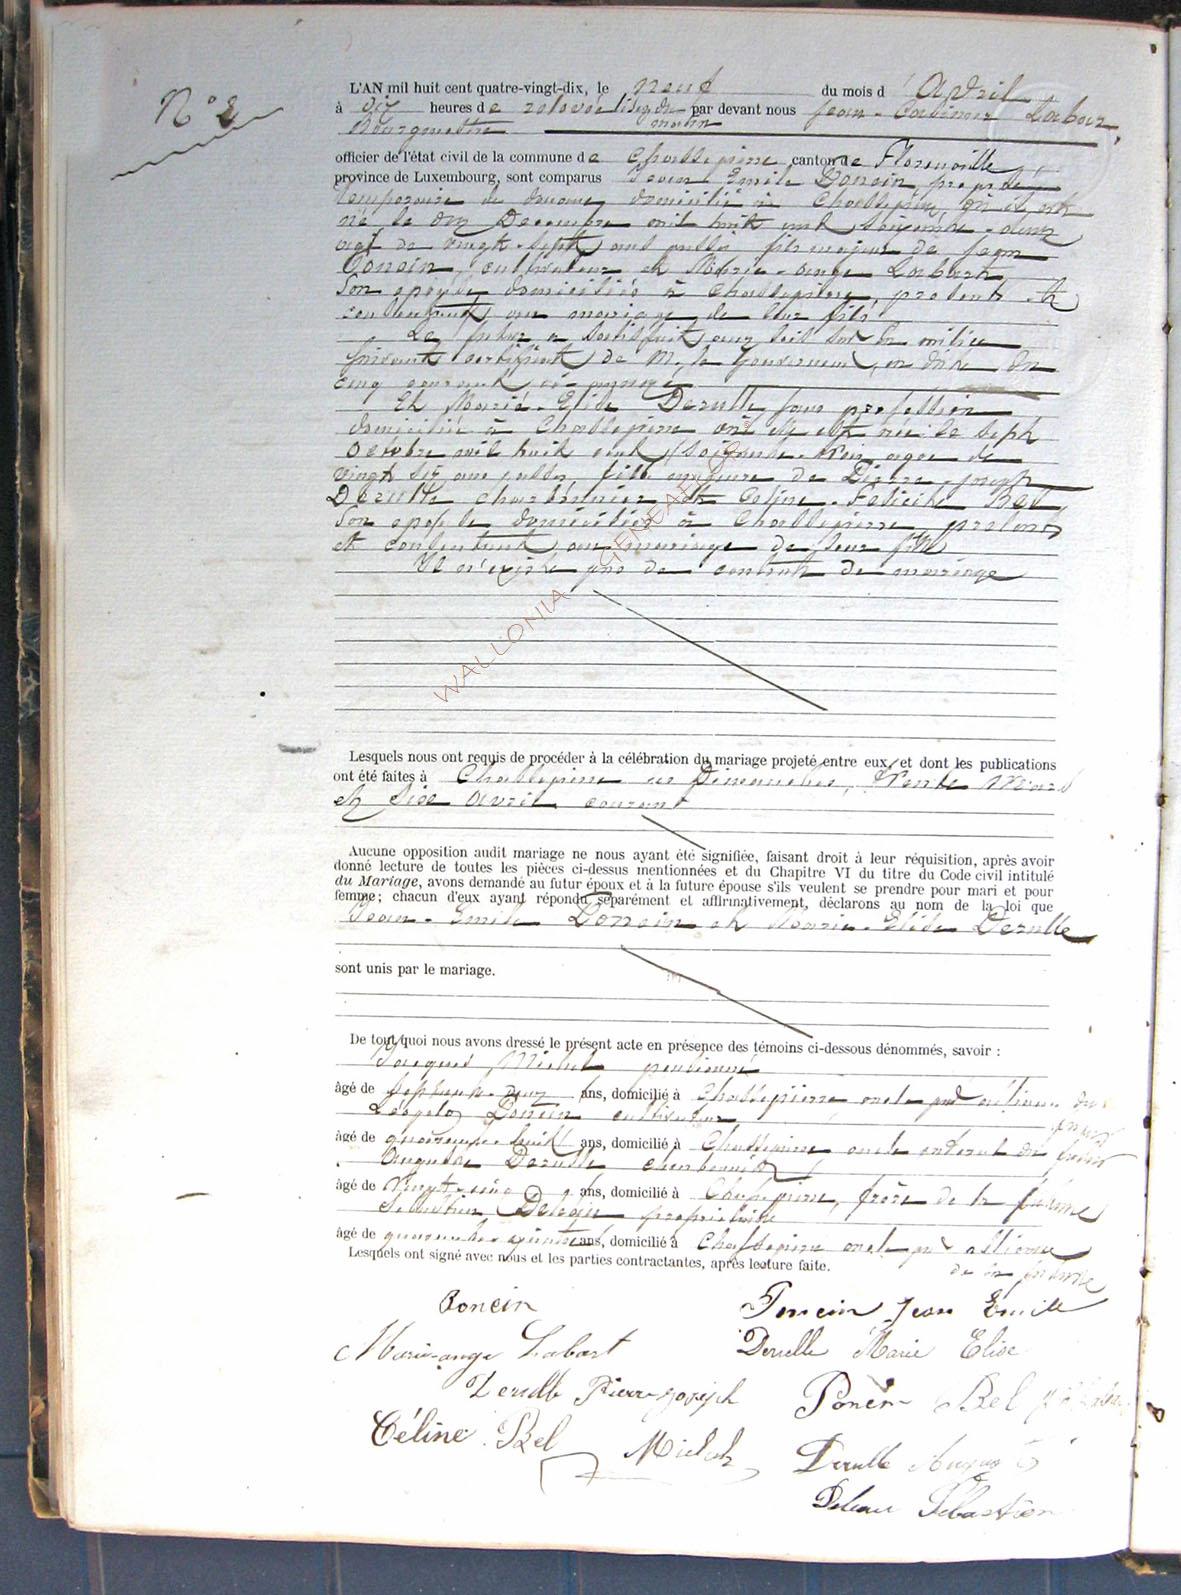 N° 2
L'AN mil huit cent quatre-vingt-dix, le neuf du mois d'Avril
à dix heures de du par devant nous Jean-Casimir
matin
Bourgmestre
officier de l'état civil de la commune de Chassepierre canton de Florenville
province de Luxembourg, sont comparus Jean Emile Poncin, préposé
temporaire de douane, domicilié à Chassepierre où il est
né le dix Décembre mil huit cent soixante-deux
âgé de vingt-sept ans passés fils majeur de Jean
Poncin, cultivateur et Marie-Ange Labart
son épouse domiciliés à Chassepierre, présents et
consentant au mariage de leur fils
Le futur a satisfait aux lois sur la milice
suivant certificat de M. le Gouverneur, en date du
cinq courant ci-annexé
Et Marie-Elise Derulle, sans profession
domiciliée à Chassepierre où elle est née le sept
Octobre mil huit cent soixante-trois âgée de
vingt six ans passés fille majeure de Pierre-Joseph
Derulle et Céline-Félicité Bel
son épouse domiciliés à Chassepierre, présents
et consentant au mariage de leur fille
Il n'existe pas de contrat de mariage
WALLONIA GENEAFGD
Lesquels nous ont requis de procéder à la célébration du mariage projeté entre eux, et dont les publications
ont été faites à Chassepierre les Dimanches, trente Mars
et six Avril courant
Aucune opposition audit mariage ne nous ayant été signifiée, faisant droit à leur réquisition, après avoir
donné lecture de toutes les pièces ci-dessus mentionnées et du Chapitre VI du titre du Code civil intitulé
du Mariage, avons demandé au futur époux et à la future épouse s'ils veulent se prendre pour mari et pour
femme; chacun d'eux ayant répondu séparément et affirmativement, déclarons au nom de la loi que
Jean-Emile Poncin et Marie-Elise Derulle
sont unis par le mariage.
De tout quoi nous avons dressé le présent acte en présence des témoins ci-dessous dénommés, savoir :
Jacques Michel pensionné
âgé de septante-deux ans, domicilié à Chassepierre oncle par alliance du
futur
Léopold Poncin cultivateur
âgé de quarante-huit ans, domicilié à Chassepierre oncle paternel du futur
Auguste Derulle
âgé de vingt-cinq ans, domicilié à Chassepierre, frère de la future
Sébastien propriétaire
âgé de quarante- ans, domicilié à Chassepierre oncle par alliance
de la future
Lesquels ont signé avec nous et les parties contractantes, après lecture faite.
Poncin Poncin Jean Emile
Marie-ange Labart Derulle Marie Elise
Derulle Pierre-joseph Poncin Bel
Céline Bel Michel Derulle
Sébastien